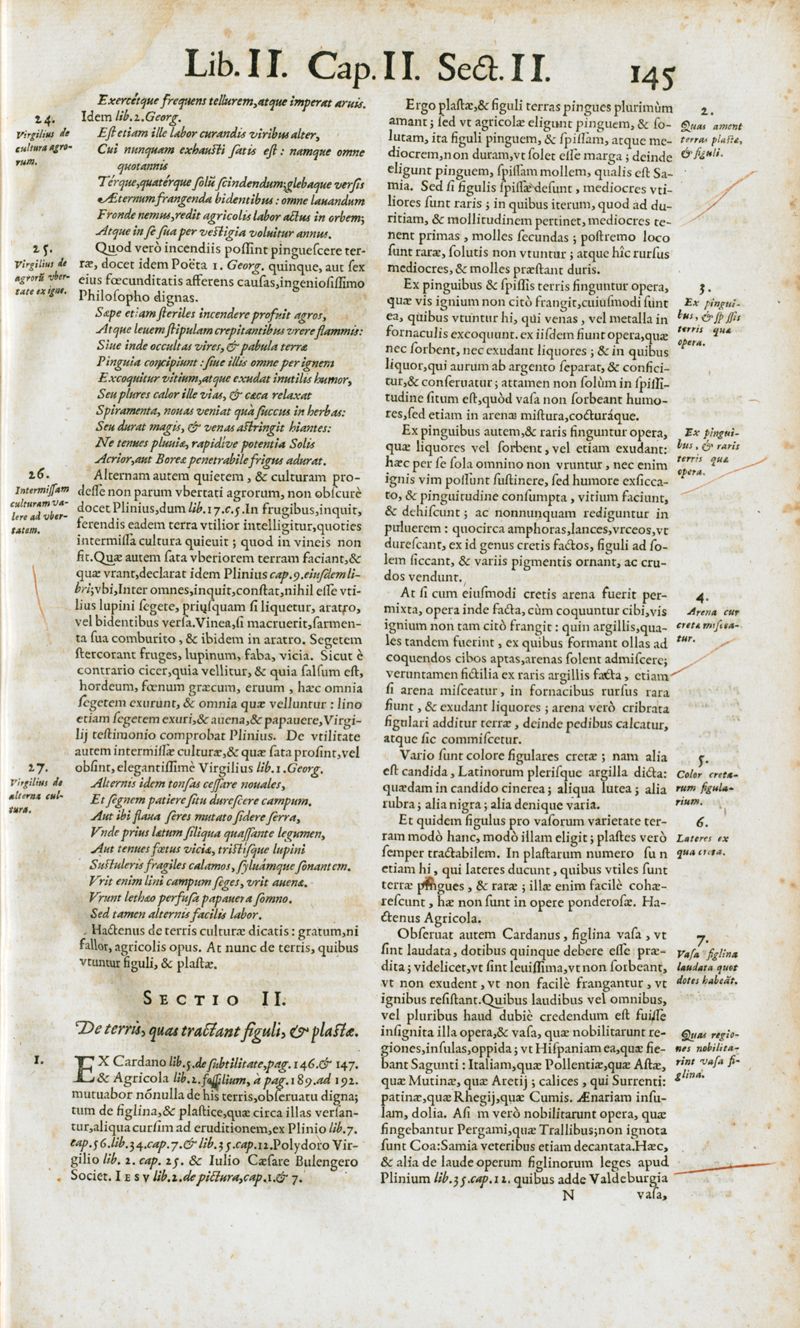 Lib. II. Cap. II. Sect. II. 145
Exercétque frequens tellurem, atque imperat aruis.
24.
Virgilius de
cultura agro-
rum.
Idem lib. 2. Georg.
Est etiam ille labor curandis viribus alter,
Cui nunquam exhausti satis est: namque omne
quotannis
Térque, quatérque solũ scindendum; glebaque versis
Æternum frangenda bidentibus: omne lauandum
Fronde nemus, redit agricolis labor actus in orbem;
Atque in se sua per vestigia voluitur annus.
25.
Virgilius de
agrorũ vber-
tate ex igne.
Quod verò incendiis possint pinguescere ter-
ræ, docet idem Poëta 1. Georg. quinque, aut sex
eius fœcunditatis afferens causas, ingeniosissimo
Philosopho dignas.
Sæpe etiam steriles incendere profuit agros,
Atque leuem stipulam crepitantibus vrere flammis:
Siue inde occultas vires, & pabula terræ
Pinguia concipiunt: siue illis omne per ignem
Excoquitur vitium, atque exudat inutilis humor,
Seu plures calor ille vias, & cæca relaxat
Spiramenta, nouas veniat quà succus in herbas:
Seu durat magis, & venas astringit hiantes:
Ne tenues pluuiæ, rapidive potentia Solis
Acrior, aut Boreæ penetrabile frigus adurat.
26.
Intermissam
culturam va-
lere ad vber-
tatem.
Alternam autem quietem, & culturam pro-
desse non parum vbertati agrorum, non obscurè
docet Plinius, dum lib. 17. c. 5. In frugibus, inquit,
ferendis eadem terra vtilior intelligitur, quoties
intermissa cultura quieuit; quod in vineis non
fit. Quæ autem sata vberiorem terram faciant, &
quæ vrant, declarat idem Plinius cap. 9. eiusdem li-
bri; vbi, Inter omnes, inquit, constat, nihil esse vti-
lius lupini segete, priusquam siliquetur, aratro,
vel bidentibus versa. Vinea, si macruerit, sarmen-
ta sua comburito, & ibidem in aratro. Segetem
stercorant fruges, lupinum, faba, vicia. Sicut è
contrario cicer, quia vellitur, & quia salsum est,
hordeum, fœnum græcum, eruum, hæc omnia
segetem exurunt, & omnia quæ velluntur: lino
etiam segetem exuri, & auena, & papauere, Virgi-
lij testimonio comprobat Plinius. De vtilitate
autem intermissæ culturæ, & quæ sata prosint, vel
obsint, elegantissimè Virgilius lib. 1. Georg.
27.
Virgilius de
alterna cul-
tura.
Alternis idem tonsas cessare nouales,
Et segnem patiere situ durescere campum.
Aut ibi flaua seres mutato sidere ferra,
Vnde prius lætum siliqua quassante legumen,
Aut tenues fœtus viciæ, tristisque lupini
Sustuleris fragiles calamos, syluámque sonantem.
Vrit enim lini campum seges, vrit auenæ.
Vrunt lethæo perfusa papauera somno.
Sed tamen alternis facilis labor.
Hactenus de terris culturæ dicatis: gratum, ni
fallor, agricolis opus. At nunc de terris, quibus
vtuntur figuli, & plastæ.
SECTIO II.
De terris, quas tractant figuli, & plastæ.
1.
EX Cardano lib. 5. de subtilitate, pag. 146. & 147.
& Agricola lib. 2. fossilium, à pag. 189. ad 192.
mutuabor nõnulla de his terris, obseruatu digna;
tum de figlina, & plastice, quæ circa illas versan-
tur, aliqua cursim ad eruditionem, ex Plinio lib. 7.
cap. 56. lib. 34. cap. 7. & lib. 35. cap. 12. Polydoro Vir-
gilio lib. 2. cap. 25. & Iulio Cæsare Bulengero
Societ. IESV lib. 2. de pictura, cap. 1. & 7.
Ergo plastæ, & figuli terras pingues plurimùm
amant; sed vt agricolæ eligunt pinguem, & so-
lutam, ita figuli pinguem, & spissam, atque me-
diocrem, non duram, vt solet esse marga; deinde
eligunt pinguem, spissam mollem, qualis est Sa-
mia. Sed si figulis spissæ desunt, mediocres vti-
liores sunt raris; in quibus iterum, quod ad du-
ritiam, & mollitudinem pertinet, mediocres te-
nent primas, molles secundas; postremo loco
sunt raræ, solutis non vtuntur; atque hîc rursus
mediocres, & molles præstant duris.
2.
Quas ament
terras plastæ,
& figuli.
Ex pinguibus & spissis terris finguntur opera,
quæ vis ignium non citò frangit, cuiusmodi sunt
ea, quibus vtuntur hi, qui venas, vel metalla in
fornaculis excoquunt. ex iisdem fiunt opera, quæ
nec sorbent, nec exudant liquores; & in quibus
liquor, qui aurum ab argento separat, & confici-
tur, & conseruatur; attamen non solùm in spissi-
tudine situm est, quòd vasa non sorbeant humo-
res, sed etiam in arenæ mistura, cocturáque.
3.
Ex pingui-
bus, & spissis
terris quæ
opera.
Ex pinguibus autem, & raris finguntur opera,
quæ liquores vel sorbent, vel etiam exudant:
hæc per se sola omnino non vruntur, nec enim
ignis vim possunt sustinere, sed humore exsicca-
to, & pinguitudine consumpta, vitium faciunt,
& dehiscunt; ac nonnunquam rediguntur in
puluerem: quocirca amphoras, lances, vrceos, vt
durescant, ex id genus cretis factos, figuli ad so-
lem siccant, & variis pigmentis ornant, ac cru-
dos vendunt.
Ex pingui-
bus, & raris
terris quæ
opera.
At si cum eiusmodi cretis arena fuerit per-
mixta, opera inde facta, cùm coquuntur cibi, vis
ignium non tam citò frangit: quin argillis, qua-
les tandem fuerint, ex quibus formant ollas ad
coquendos cibos aptas, arenas solent admiscere;
veruntamen fictilia ex raris argillis facta, etiam
si arena misceatur, in fornacibus rursus rara
fiunt, & exudant liquores; arena verò cribrata
figulari additur terræ, deinde pedibus calcatur,
atque sic commiscetur.
4.
Arena cur
cretæ miscea-
tur.
Vario sunt colore figulares cretæ; nam alia
est candida, Latinorum plerisque argilla dicta:
quædam in candido cinerea; aliqua lutea; alia
rubra; alia nigra; alia denique varia.
5.
Color creta-
rum figula-
rium.
Et quidem figulus pro vasorum varietate ter-
ram modò hanc, modò illam eligit; plastes verò
semper tractabilem. In plastarum numero su n
etiam hi, qui lateres ducunt, quibus vtiles sunt
terræ pingues, & raræ; illæ enim facilè cohæ-
rescunt, hæ non sunt in opere ponderosæ. Ha-
ctenus Agricola.
6.
Lateres ex
qua creta.
Obseruat autem Cardanus, figlina vasa, vt
sint laudata, dotibus quinque debere esse præ-
dita; videlicet, vt sint leuissima, vt non sorbeant,
vt non exudent, vt non facilè frangantur, vt
ignibus resistant. Quibus laudibus vel omnibus,
vel pluribus haud dubiè credendum est fuisse
insignita illa opera, & vasa, quæ nobilitarunt re-
giones, insulas, oppida; vt Hispaniam ea, quæ fie-
bant Sagunti: Italiam, quæ Pollentiæ, quæ Astæ,
quæ Mutinæ, quæ Aretij; calices, qui Surrenti:
patinæ, quæ Rhegij, quæ Cumis. Ænariam insu-
lam, dolia. Asi m verò nobilitarunt opera, quæ
fingebantur Pergami, quæ Trallibus; non ignota
sunt Coa: Samia veteribus etiam decantata. Hæc,
& alia de laude operum figlinorum leges apud
Plinium lib. 35. cap. 12. quibus adde Valdeburgia
7.
Vasa figlina
laudata quot
dotes habeãt.
Quas regio-
nes nobilita-
rint vasa fi-
glina.
N vasa,